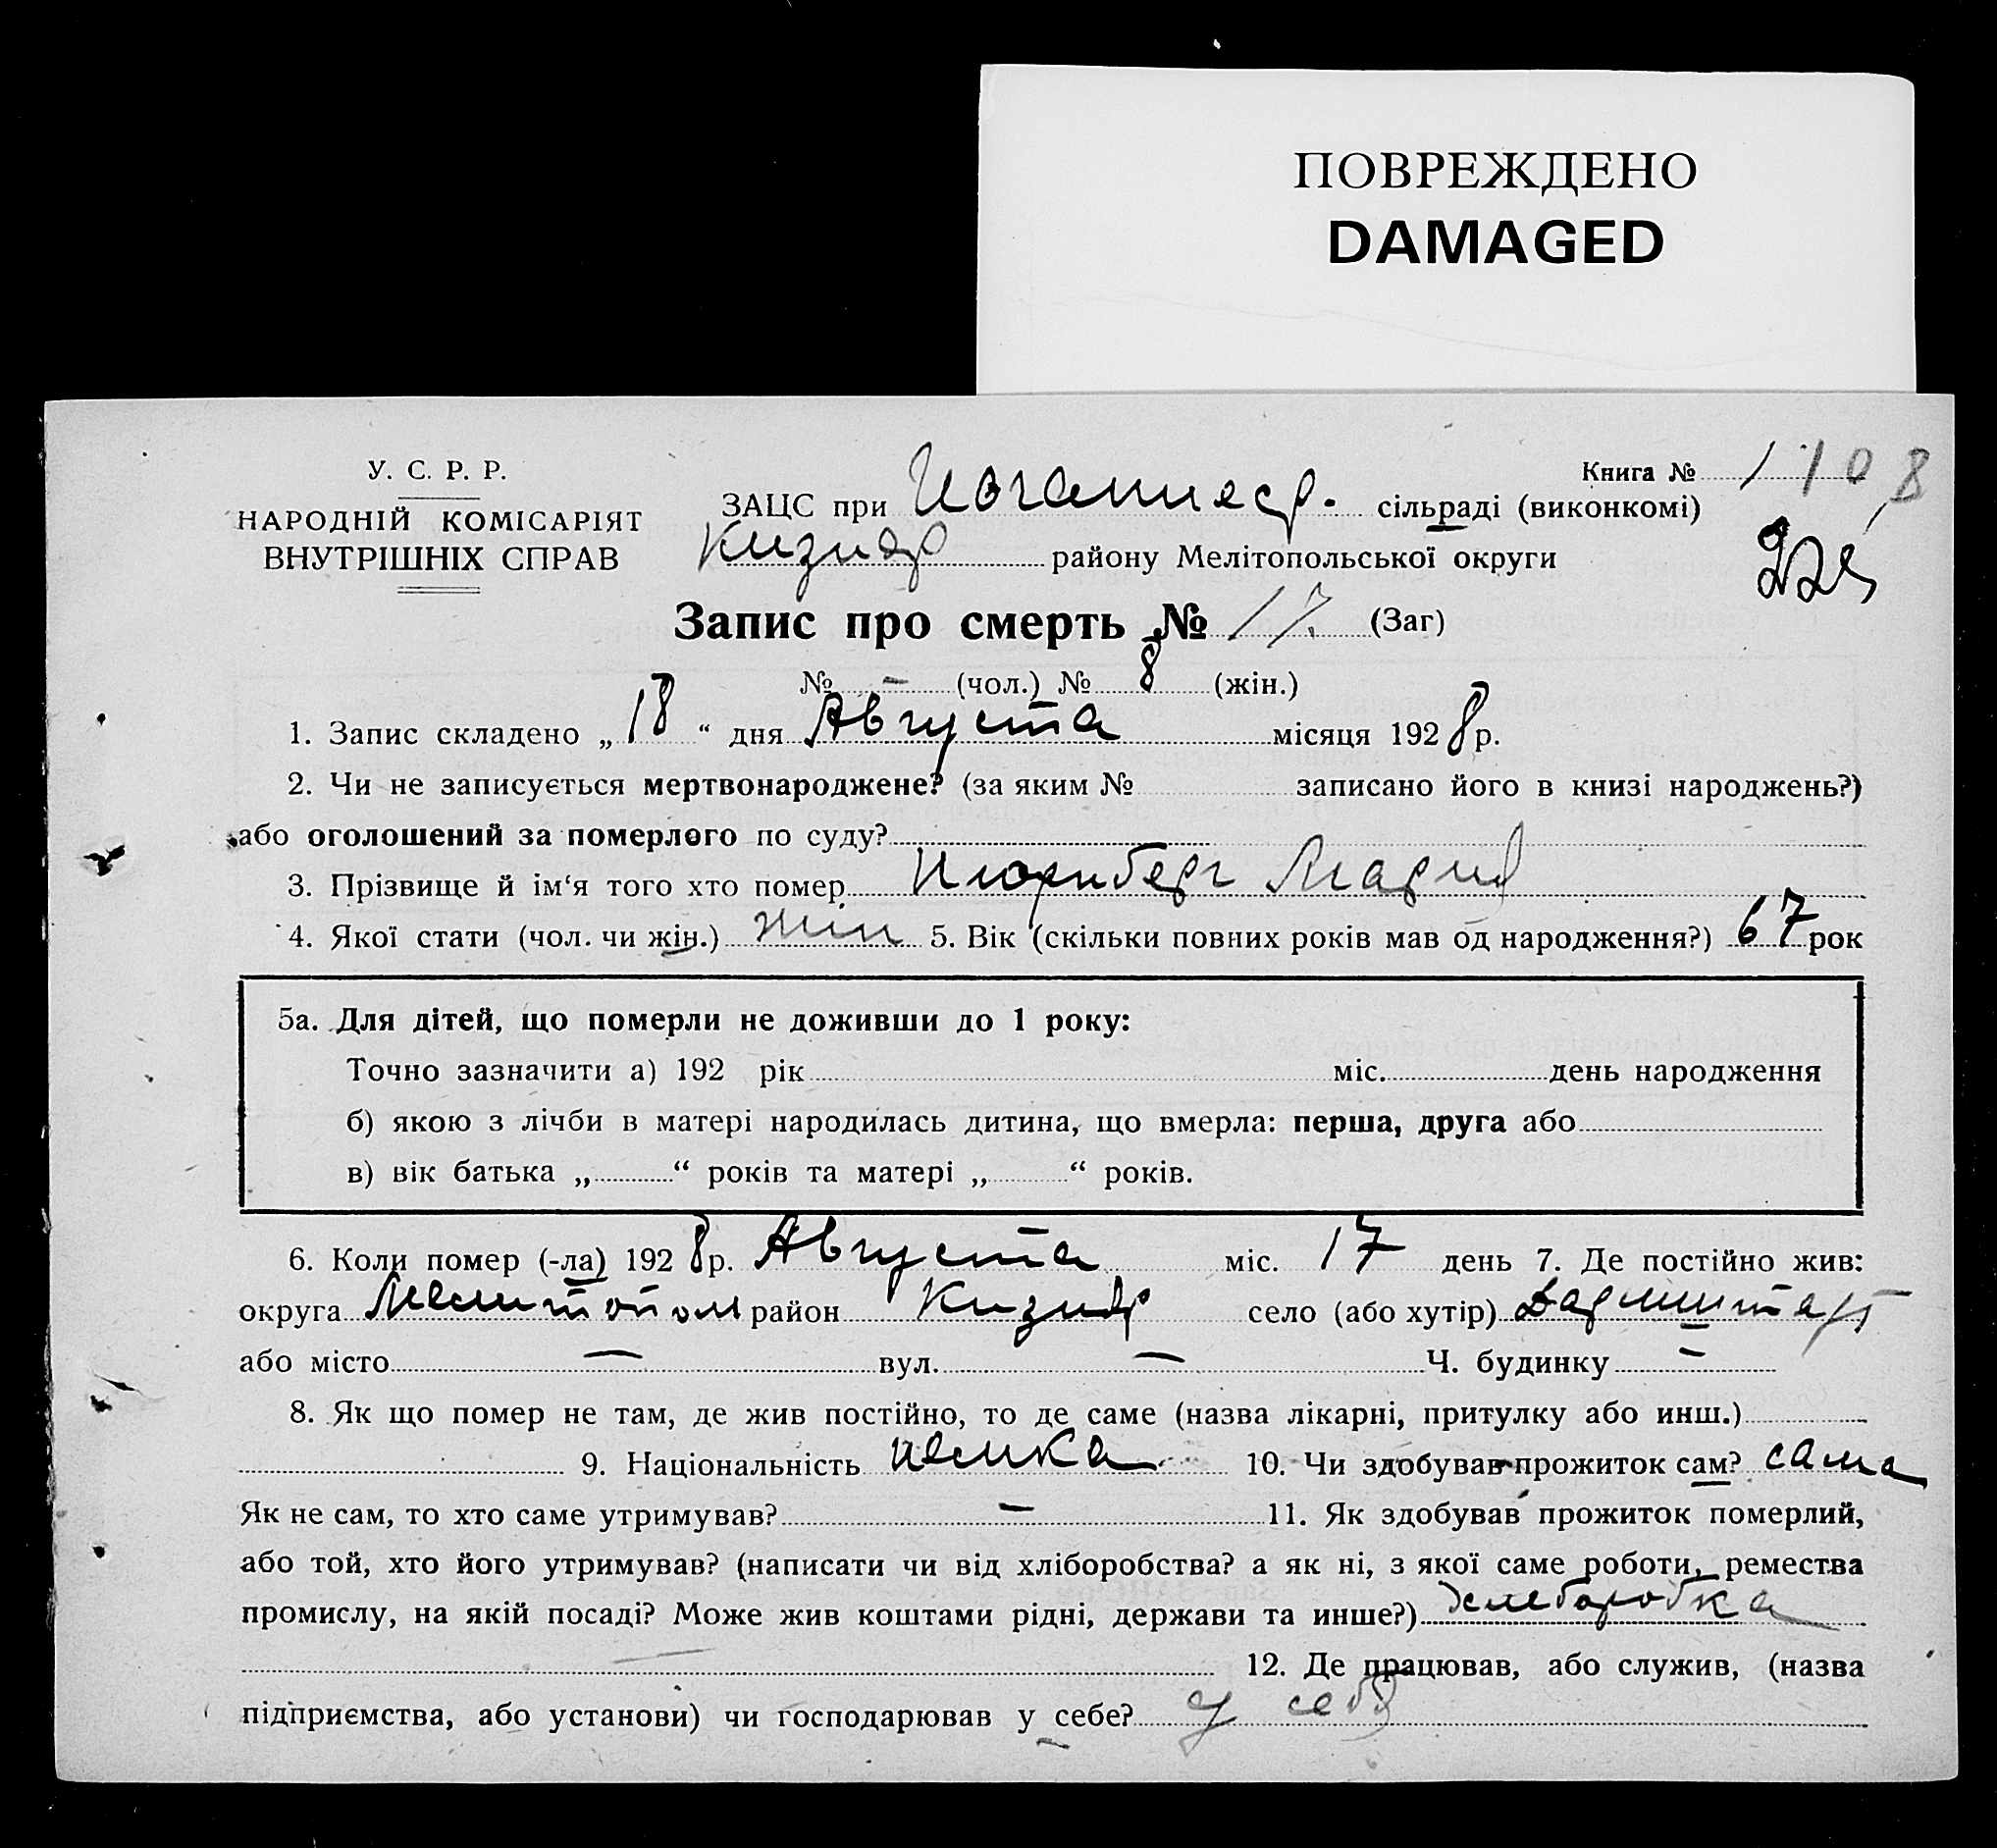 ПОВРЕЖДЕНО
DAMAGED
У. С. Р. Р.
НАРОДНІЙ КОМІСАРІЯТ
ВНУТРІШНІХ СПРАВ
Книга № 1
108
ЗАЦС при Иоганнеср. сільраді (виконкомі)
Кизияр району Мелітопольської округи
Запис про смерть № 17. (Заг)
№ – (чол.) № 8 (жін.)
1. Запис складено „ 18 “ дня Августа місяця 1928 р.
2. Чи не записується мертвонароджене? (за яким № записано його в книзі народжень?)
або оголошений за померлого по суду?
3. Прізвище й ім‘я того хто помер Нюрнберг Мария
4. Якої стати (чол. чи жін.) жін 5. Вік (скільки повних років мав од народження?) 67 рок
5а. Для дітей, що померли не доживши до 1 року:
Точно зазначити а) 192 рік міс. день народження
б) якою з лічби в матері народилась дитина, що вмерла: перша, друга або
в) вік батька „ “ років та матері „ “ років.
6. Коли помер (-ла) 1928 р. Августа міс. 17 день 7. Де постійно жив:
округа Мелитопол район Кизияр село (або хутір) Дармштадт
або місто — вул. — Ч. будинку —
8. Як що помер не там, де жив постійно, то де саме (назва лікарні, притулку або инш.)
9. Національність немка 10. Чи здобував прожиток сам? сама
Як не сам, то хто саме утримував? — 11. Як здобував прожиток померлий,
або той, хто його утримував? (написати чи від хліборобства? а як ні, з якої саме роботи, ремества
промислу, на якій посаді? Може жив коштами рідні, держави та инше?) хлеборобка
12. Де працював, або служив, (назва
підприємства, або установи) чи господарював у себе? у себя